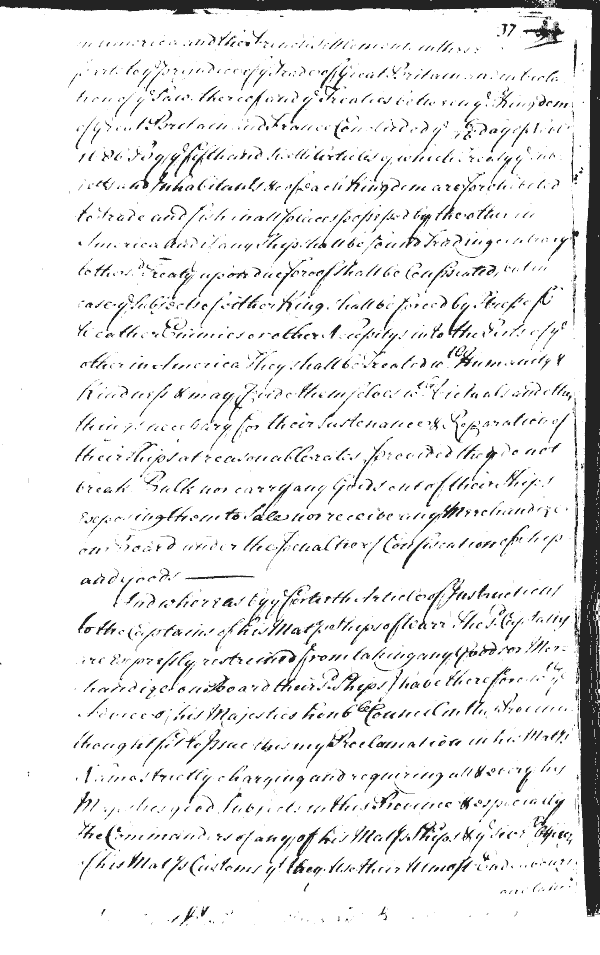 37
in America and the French settlement in those
parts to ye prejudice of ye Trade of Great Britain and in viola
tion of ye Laws thereof and ye Treaties between ye Kingdoms
of Great Britain and France Concluded ye day of
1686 By ye fifth and Articles of which Treaty ye
and Inhabitants &c of each Kingdom are prohibited
to trade and fish in all places possessed by the other in
America and if any Ship shall be found Trading contrary
to the sd. Treaty upon due proof shall be Confiscated, but in
case ye Subjects of either King shall be forced by Stress of
Weather Enimies or other Necessitys into the Ports of ye
other in America They shall be Treated wth Humanity &
Kindness & may provide themselves wth Victuals and other
things necessary for their Sustenance & Reparation of
their Ships at reasonable rates provided they do not
break Bulk nor carry any Goods out of their Ships
Exposing them to Sale nor receive any Merchandize
on Board under the penalty of Confiscation of Ship
and goods
And whereas by ye Article of Instructions
to the Captains of his Matys Ships of Warr The sd. Captains
are Expressly restrained from taking any Goods or Mer-
chandize on Board their sd. Ships I have therefore wth ye
Advice of his Majesties honble Council in the Province
thought fit to Issue this my Proclamation in his Matys
Name strictly charging and requiring all & every his
Majesties good Subjects in this Province & especially
the Commanders of any of his Matys Ships & ye
of his Matys Customs yt they Use their Utmost Endeavours